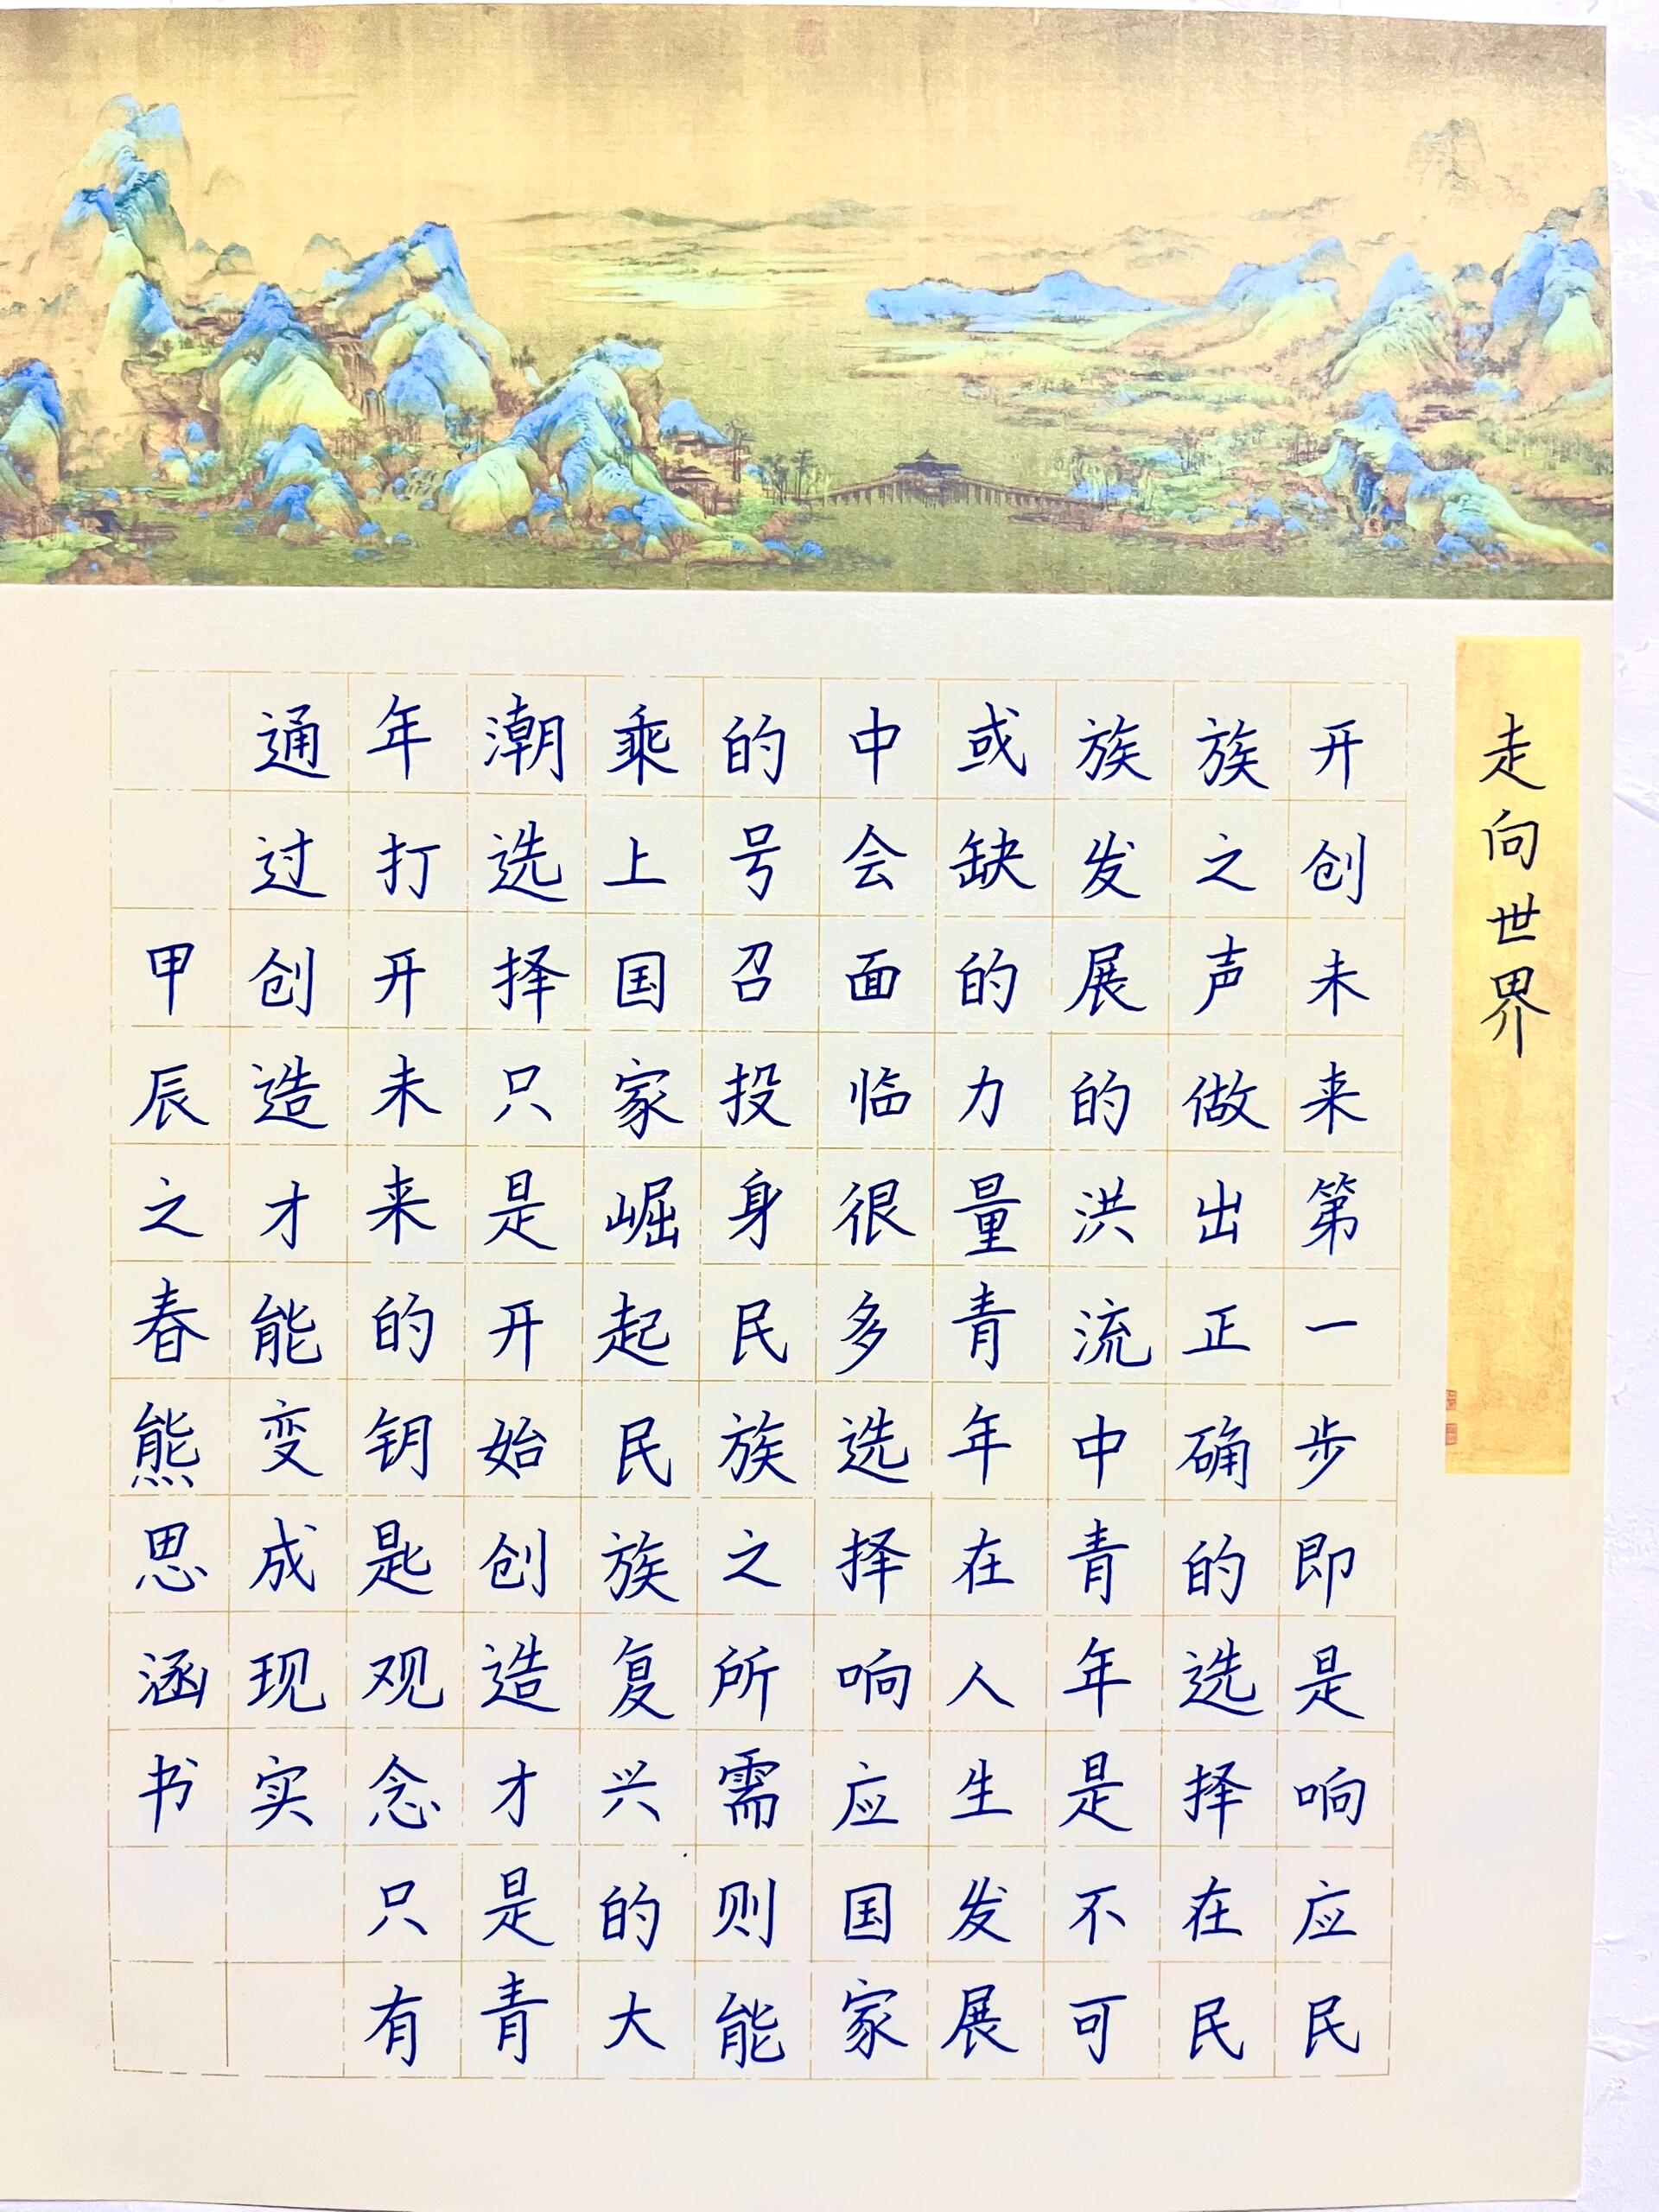 走向世界
开创未来第一步即是响应民
族之声做出正确的选择在民
族发展的洪流中青年是不可
或缺的力量青年在人生发展
中会面临很多选择响应国家
的号召投身民族之所需则能
乘上国家崛起民族复兴的大
潮选择只是开始创造才是青
年打开未来的钥匙观念只有
通过创造才能变成现实
甲辰之春熊思涵书